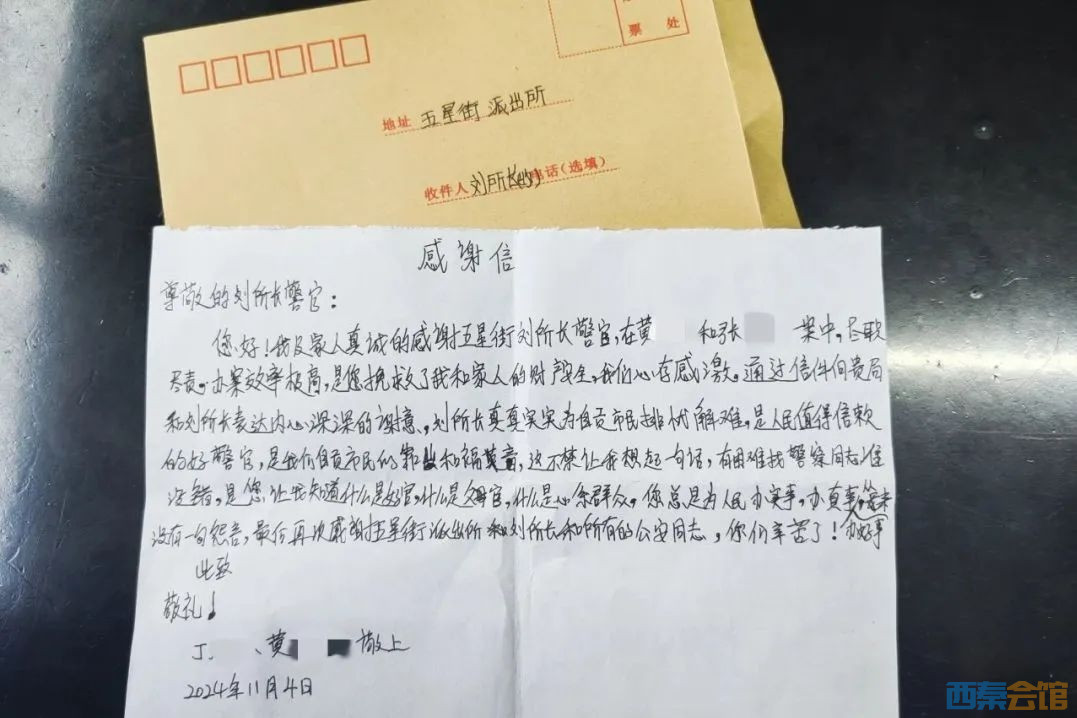 票 处
地址 五星街 派出所
收件人 刘所长 电话(选填)
感谢信
尊敬的刘所长警官:
您好!我及家人真诚的感谢五星街刘所长警官,在黄 和张 案中,尽职
尽责。办案效率极高,是您挽救了我和家人的财产安全,我们心存感激。通过信件向贵局
和刘所长表达内心深深的谢意、刘所长真真实实为自贡市民排忧解难,是人民值得信赖
的好警官,是我们自贡市民的靠山和福 ,这不禁让我想起一句话,有困难找警察同志准
没错,是您让我知道什么是好官,什么是父母官,什么是心系群众,您总是为人民办实事,办真事,从来
没有一句怨言,最后再次感谢五星街派出所和刘所长和所有的公安同志,你们辛苦了! 办好事
此致
敬礼!
丁 、黄 敬上
2024年11月4日
西秦会馆